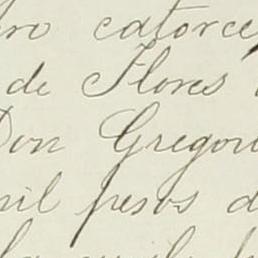 ro catorce
de Flores
Don Gregori
mil pesos d